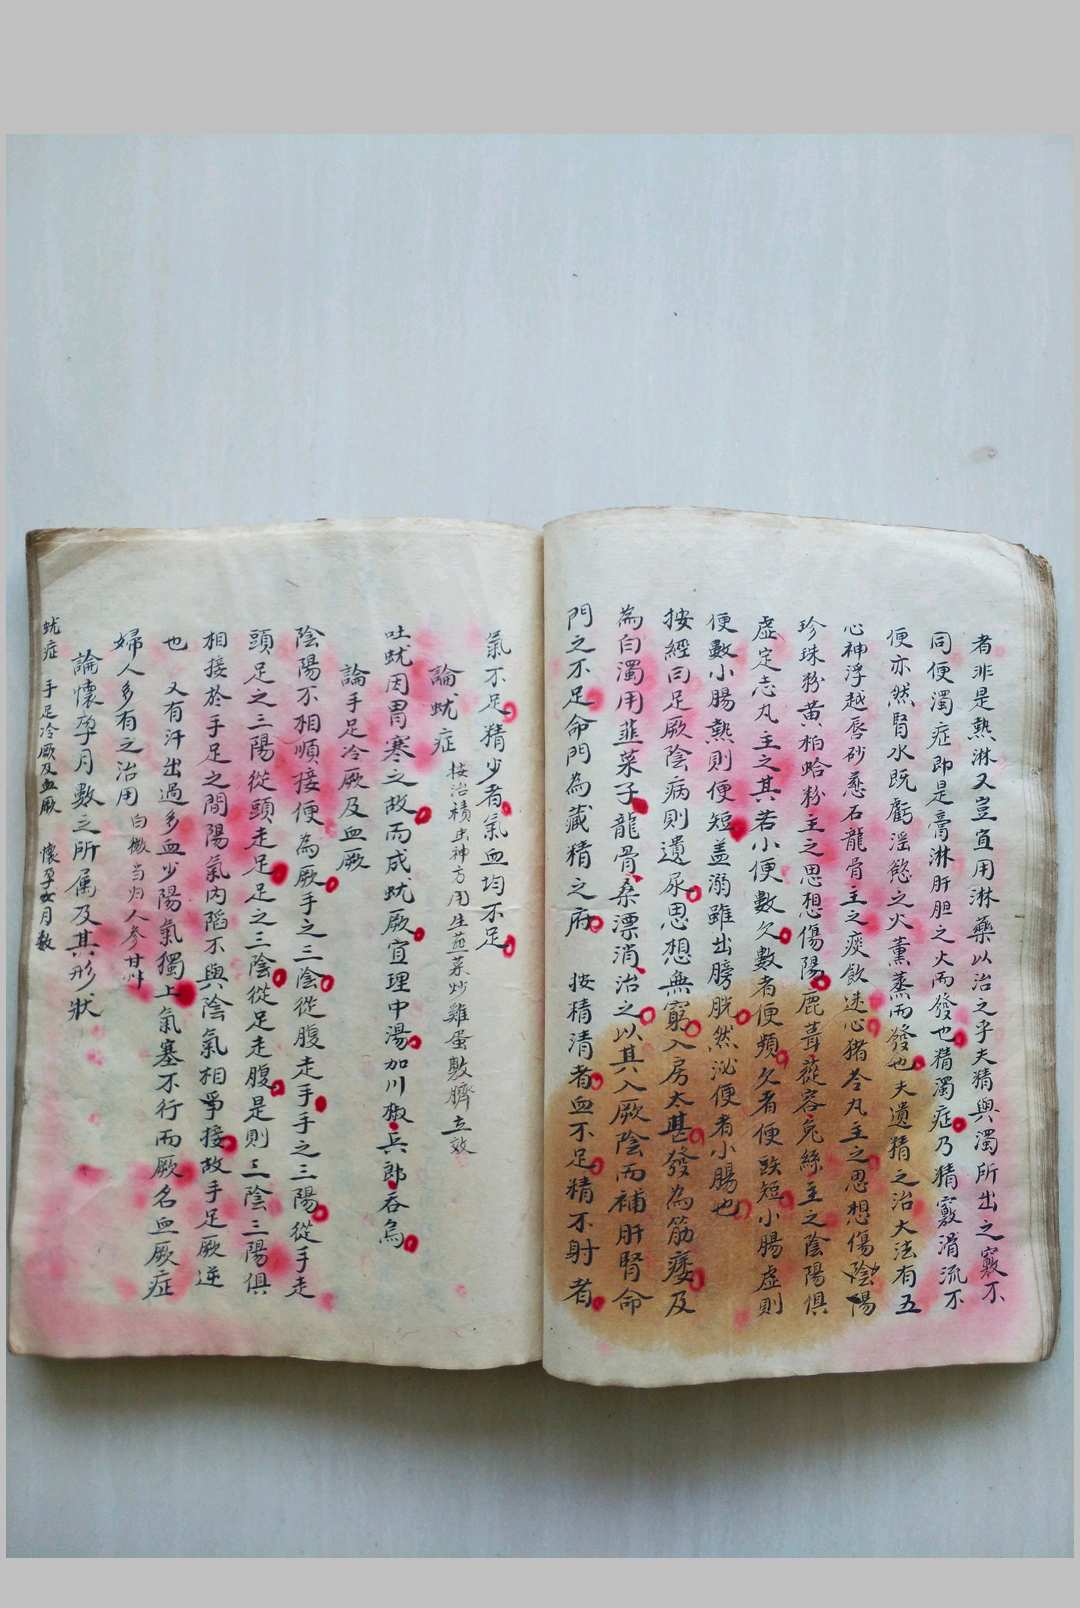 者非是熱淋又豈宜用淋藥以治之乎夫精與濁所出之竅不
同便濁症即是膏淋肝胆之火而發也精濁症乃精竅涓流不
便亦然腎水既虧淫慾之火薰蒸而發也夫遺精之治大法有五
心神浮越辰砂慈石龍骨主之痰飲迷心猪苓丸主之思想傷陰陽
珍珠粉黄柏蛤粉主之思想傷陽鹿茸蓯容兔絲主之陰陽俱
虛定志丸主之其若小便數欠數者便頻欠者便跌短小腸虛則
便數小腸熱則便短盖溺雖出膀胱然泌便者小腸也
按經曰足厥陰病則遺尿思想無窮入房太甚發為筋痿及
為白濁用韮菜子龍骨桑漂消治之以其入厥陰而補肝腎命
門之不足命門為藏精之府 按精清者血不足精不射者
氣不足精少者氣血均不足
論蚘症 按治積虫神方用生韮菜炒雞蛋敷臍立效
吐蚘因胃寒之故而成蚘厥宜理中湯加川椒兵郎吞烏
論手足冷厥及血厥
陰陽不相順接便為厥手之三陰從腹走手手之三陽從手走
頭足之三陽從頭走足足之三陰從足走腹是則三陰三陽俱
相接於手足之間陽氣内陷不與陰氣相爭接故手足厥逆
也 又有汗出過多血少陽氣獨上氣塞不行而厥名血厥症
婦人多有之治用白薇当归人参甘艸
論懷孕月數之所属及其形狀
蚘症 手足冷厥及血厥 懷孕女月数